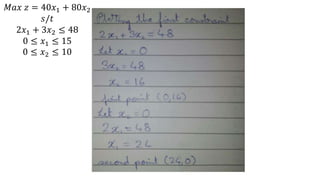 Max z = 40x₁ + 80x₂
s/t
2x₁ + 3x₂ ≤ 48
0 ≤ x₁ ≤ 15
0 ≤ x₂ ≤ 10
Plotting the first constraint
2x₁ + 3x₂ = 48
Let x₁ = 0
3x₂ = 48
x₂ = 16
first point (0,16)
Let x₂ = 0
2x₁ = 48
x₁ = 24
second point (24,0)